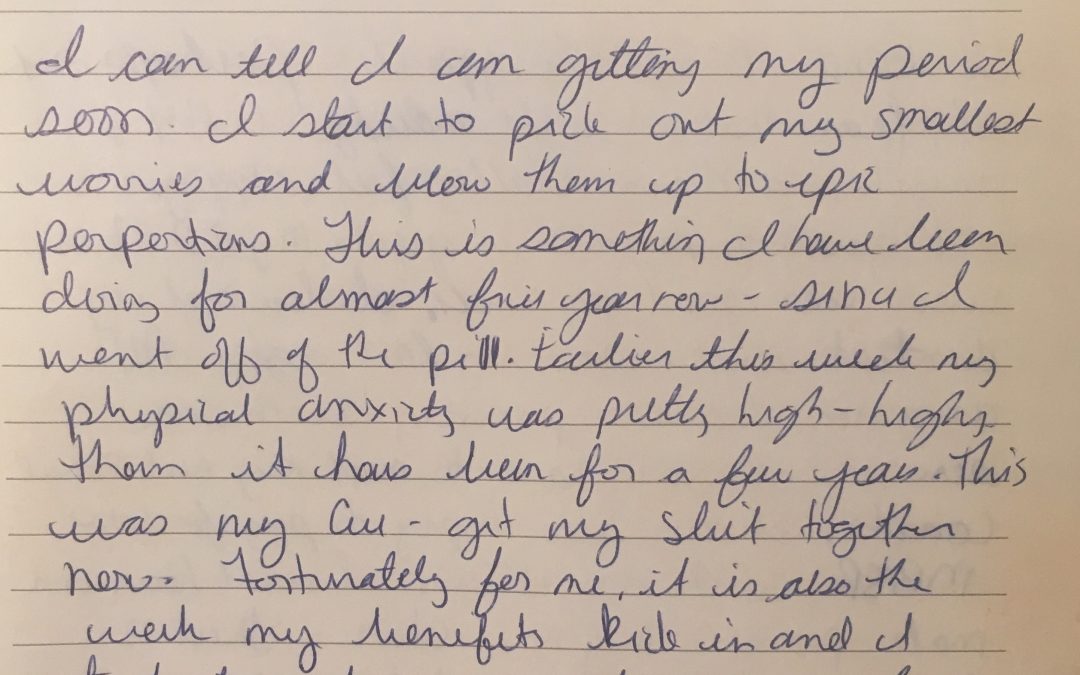 I can tell I am getting my period
soon. I start to pick out my smallest
worries and blow them up to epic
perportions. This is something I have been
doing for almost five years now - since I
went off of the pill. Earlier this week my
physical anxiety was pretty high - higher
than it has been for a few years. This
was my cue - get my shit together
now. Fortunately for me, it is also the
week my benefits kick in and I